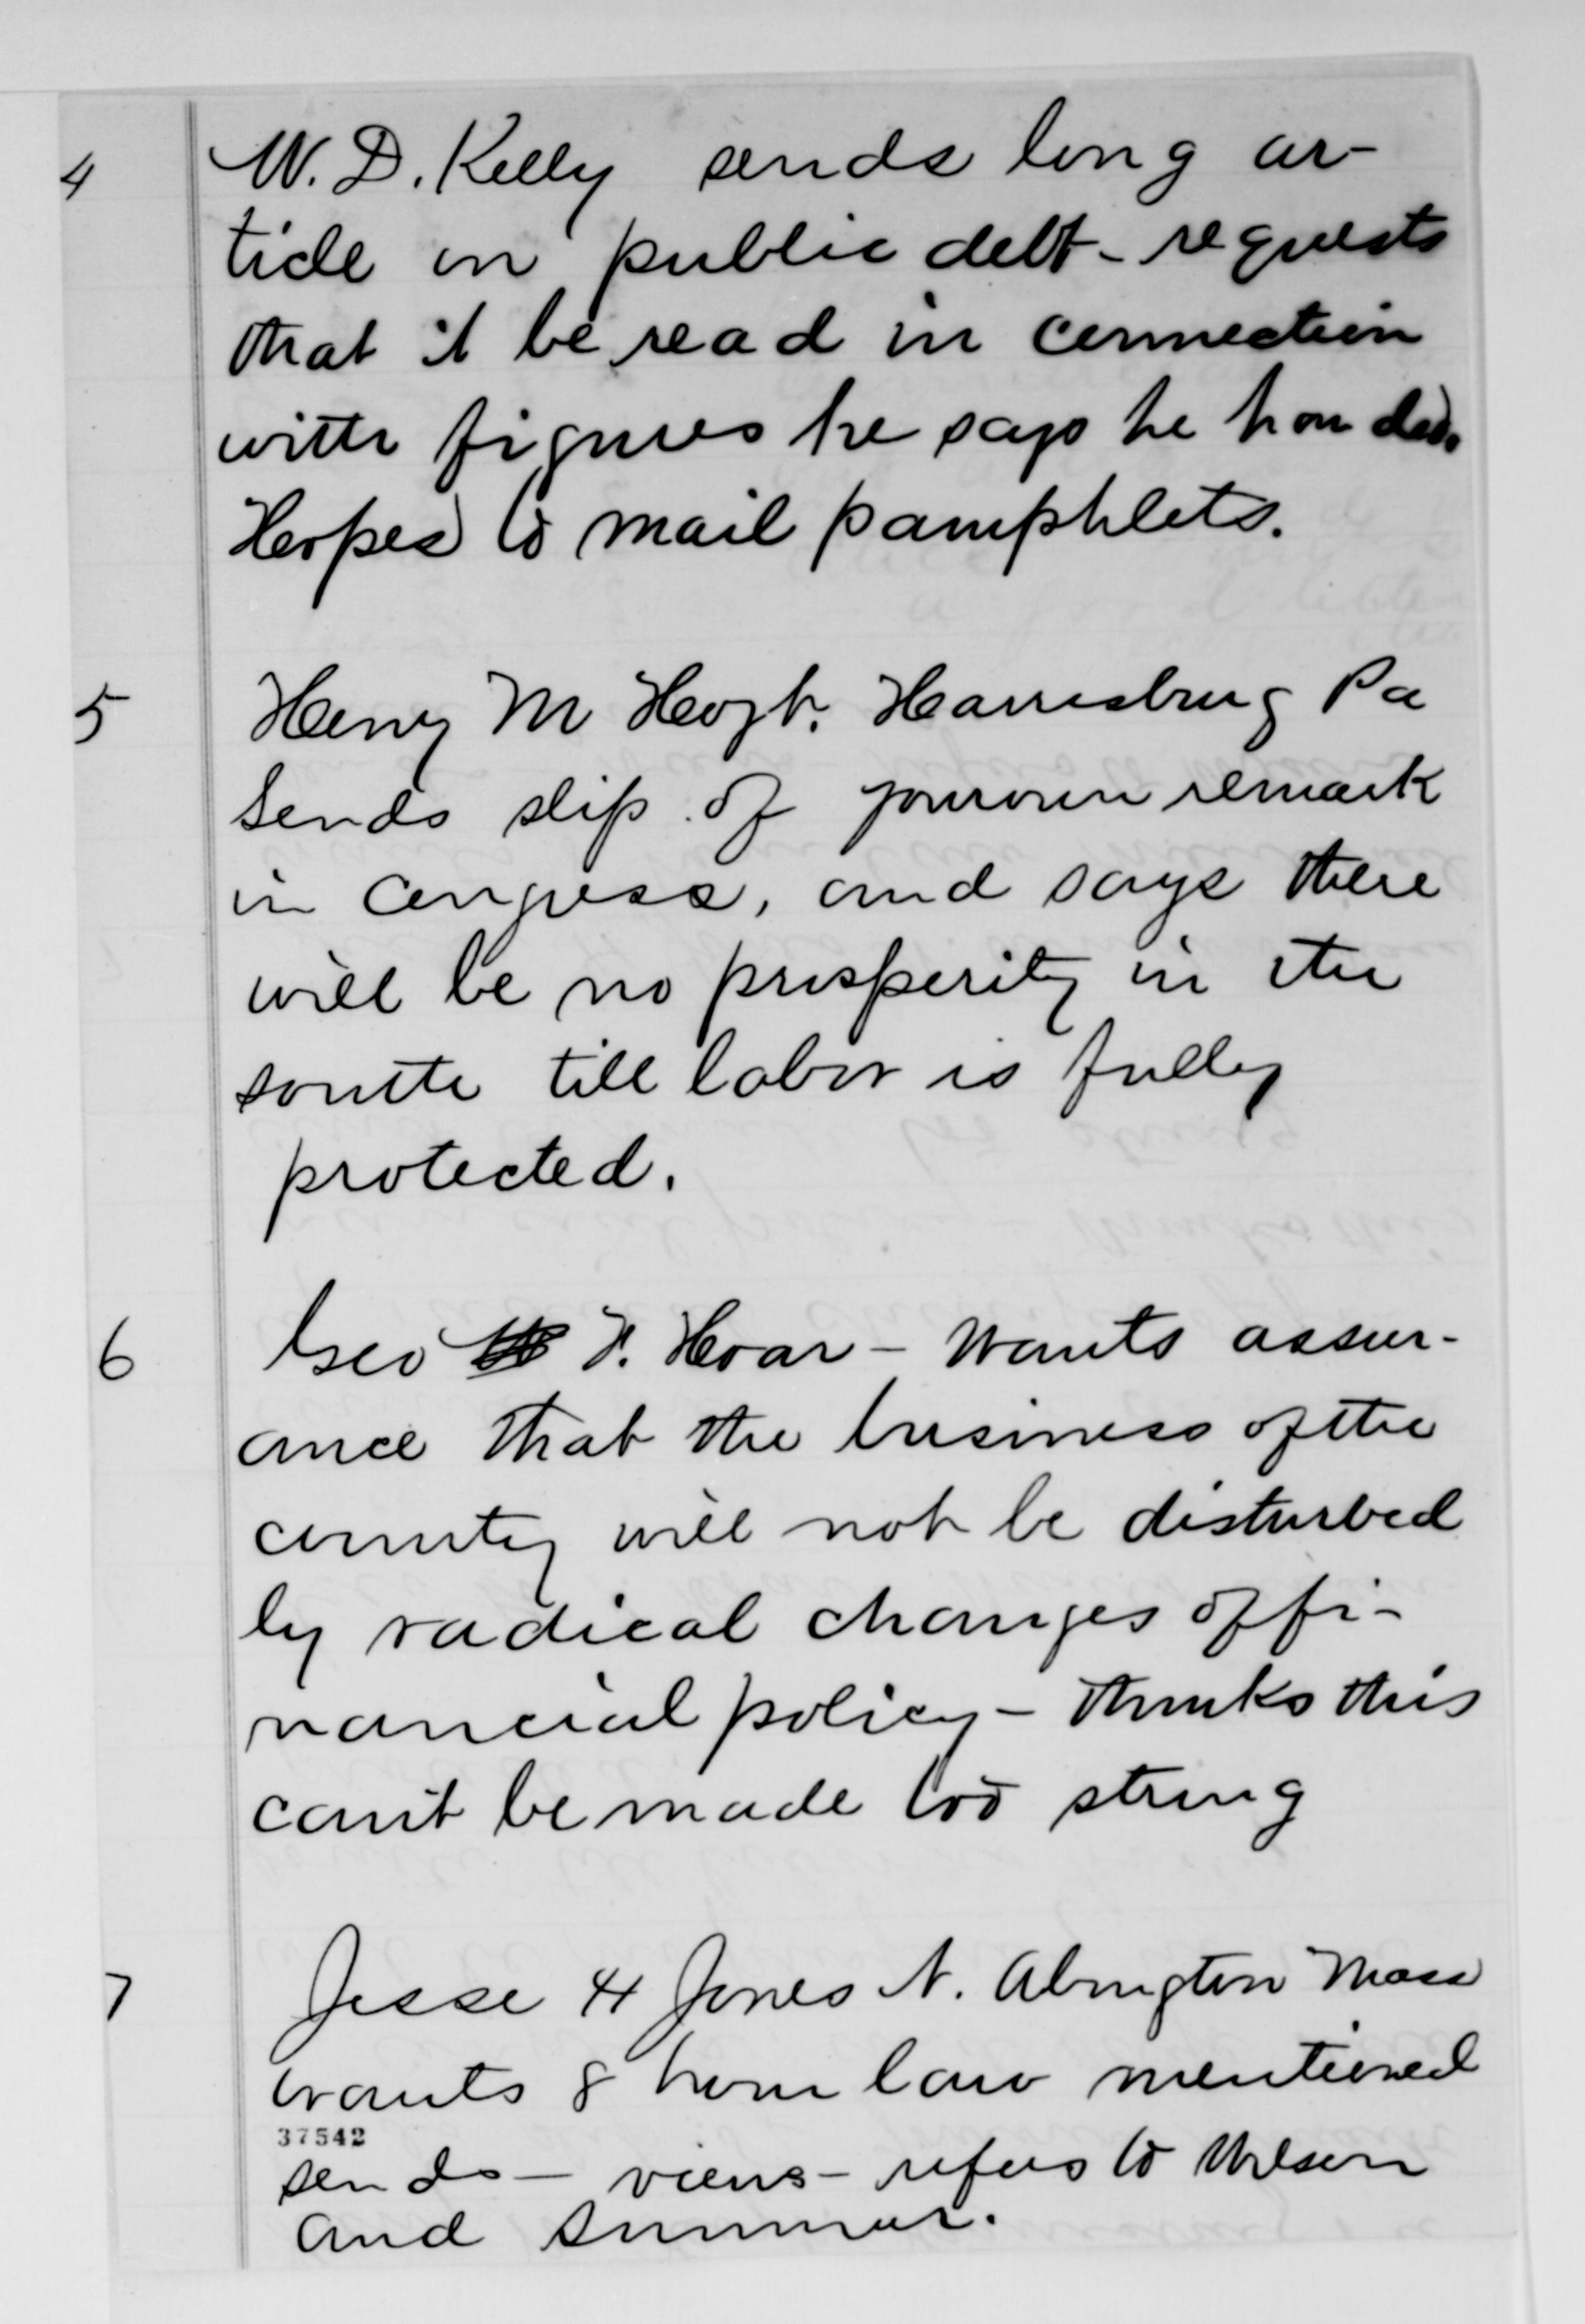 4 W. D. Kelly sends long ar-
ticle on public debt - requests
that it be read in connection
with figures he says he handed.
Hopes to mail pamphlets.
5 Henry M Hoyt. Harrisburg Pa
Sends slip of your own remark
in Congress, and says there
will be no prosperity in the
south till labor is fully
protected.
6 Geo F. Hoar - Wants assur-
ance that the business of the
country will not be disturbed
by radical changes of fi-
nancial policy - thinks this
can't be made too strong
7 Jesse H Jones N. Abington Mass
wants 8 hour law mentioned
37542
sends - views - refers to Wilson
and Sumner.